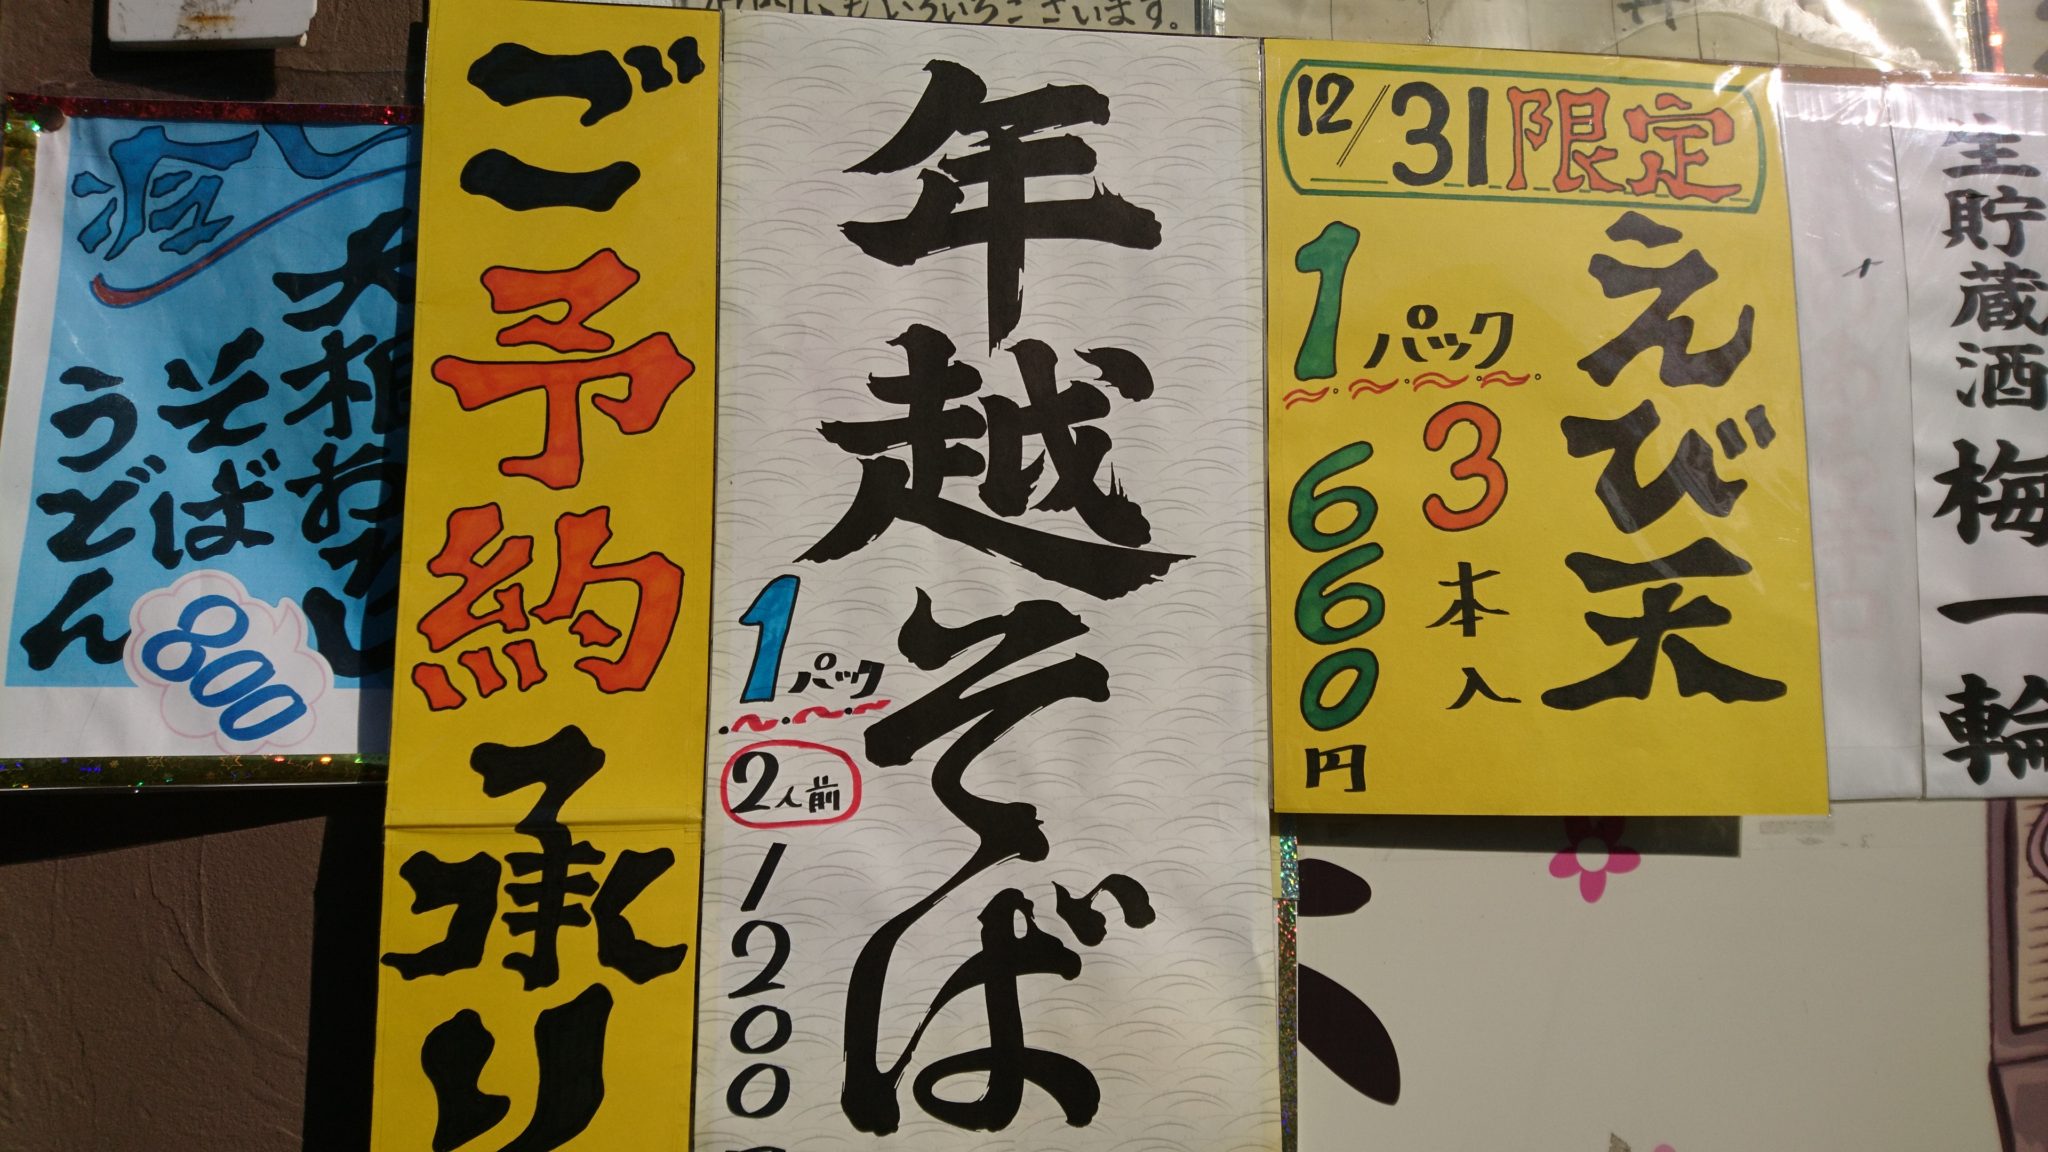 ございます。
冷
大根おろし
そば
うどん
800
ご予約承り
年越そば
1パック
2人前
1200
12/31限定
えび天
1パック
3本入
660円
生貯蔵酒梅一輪